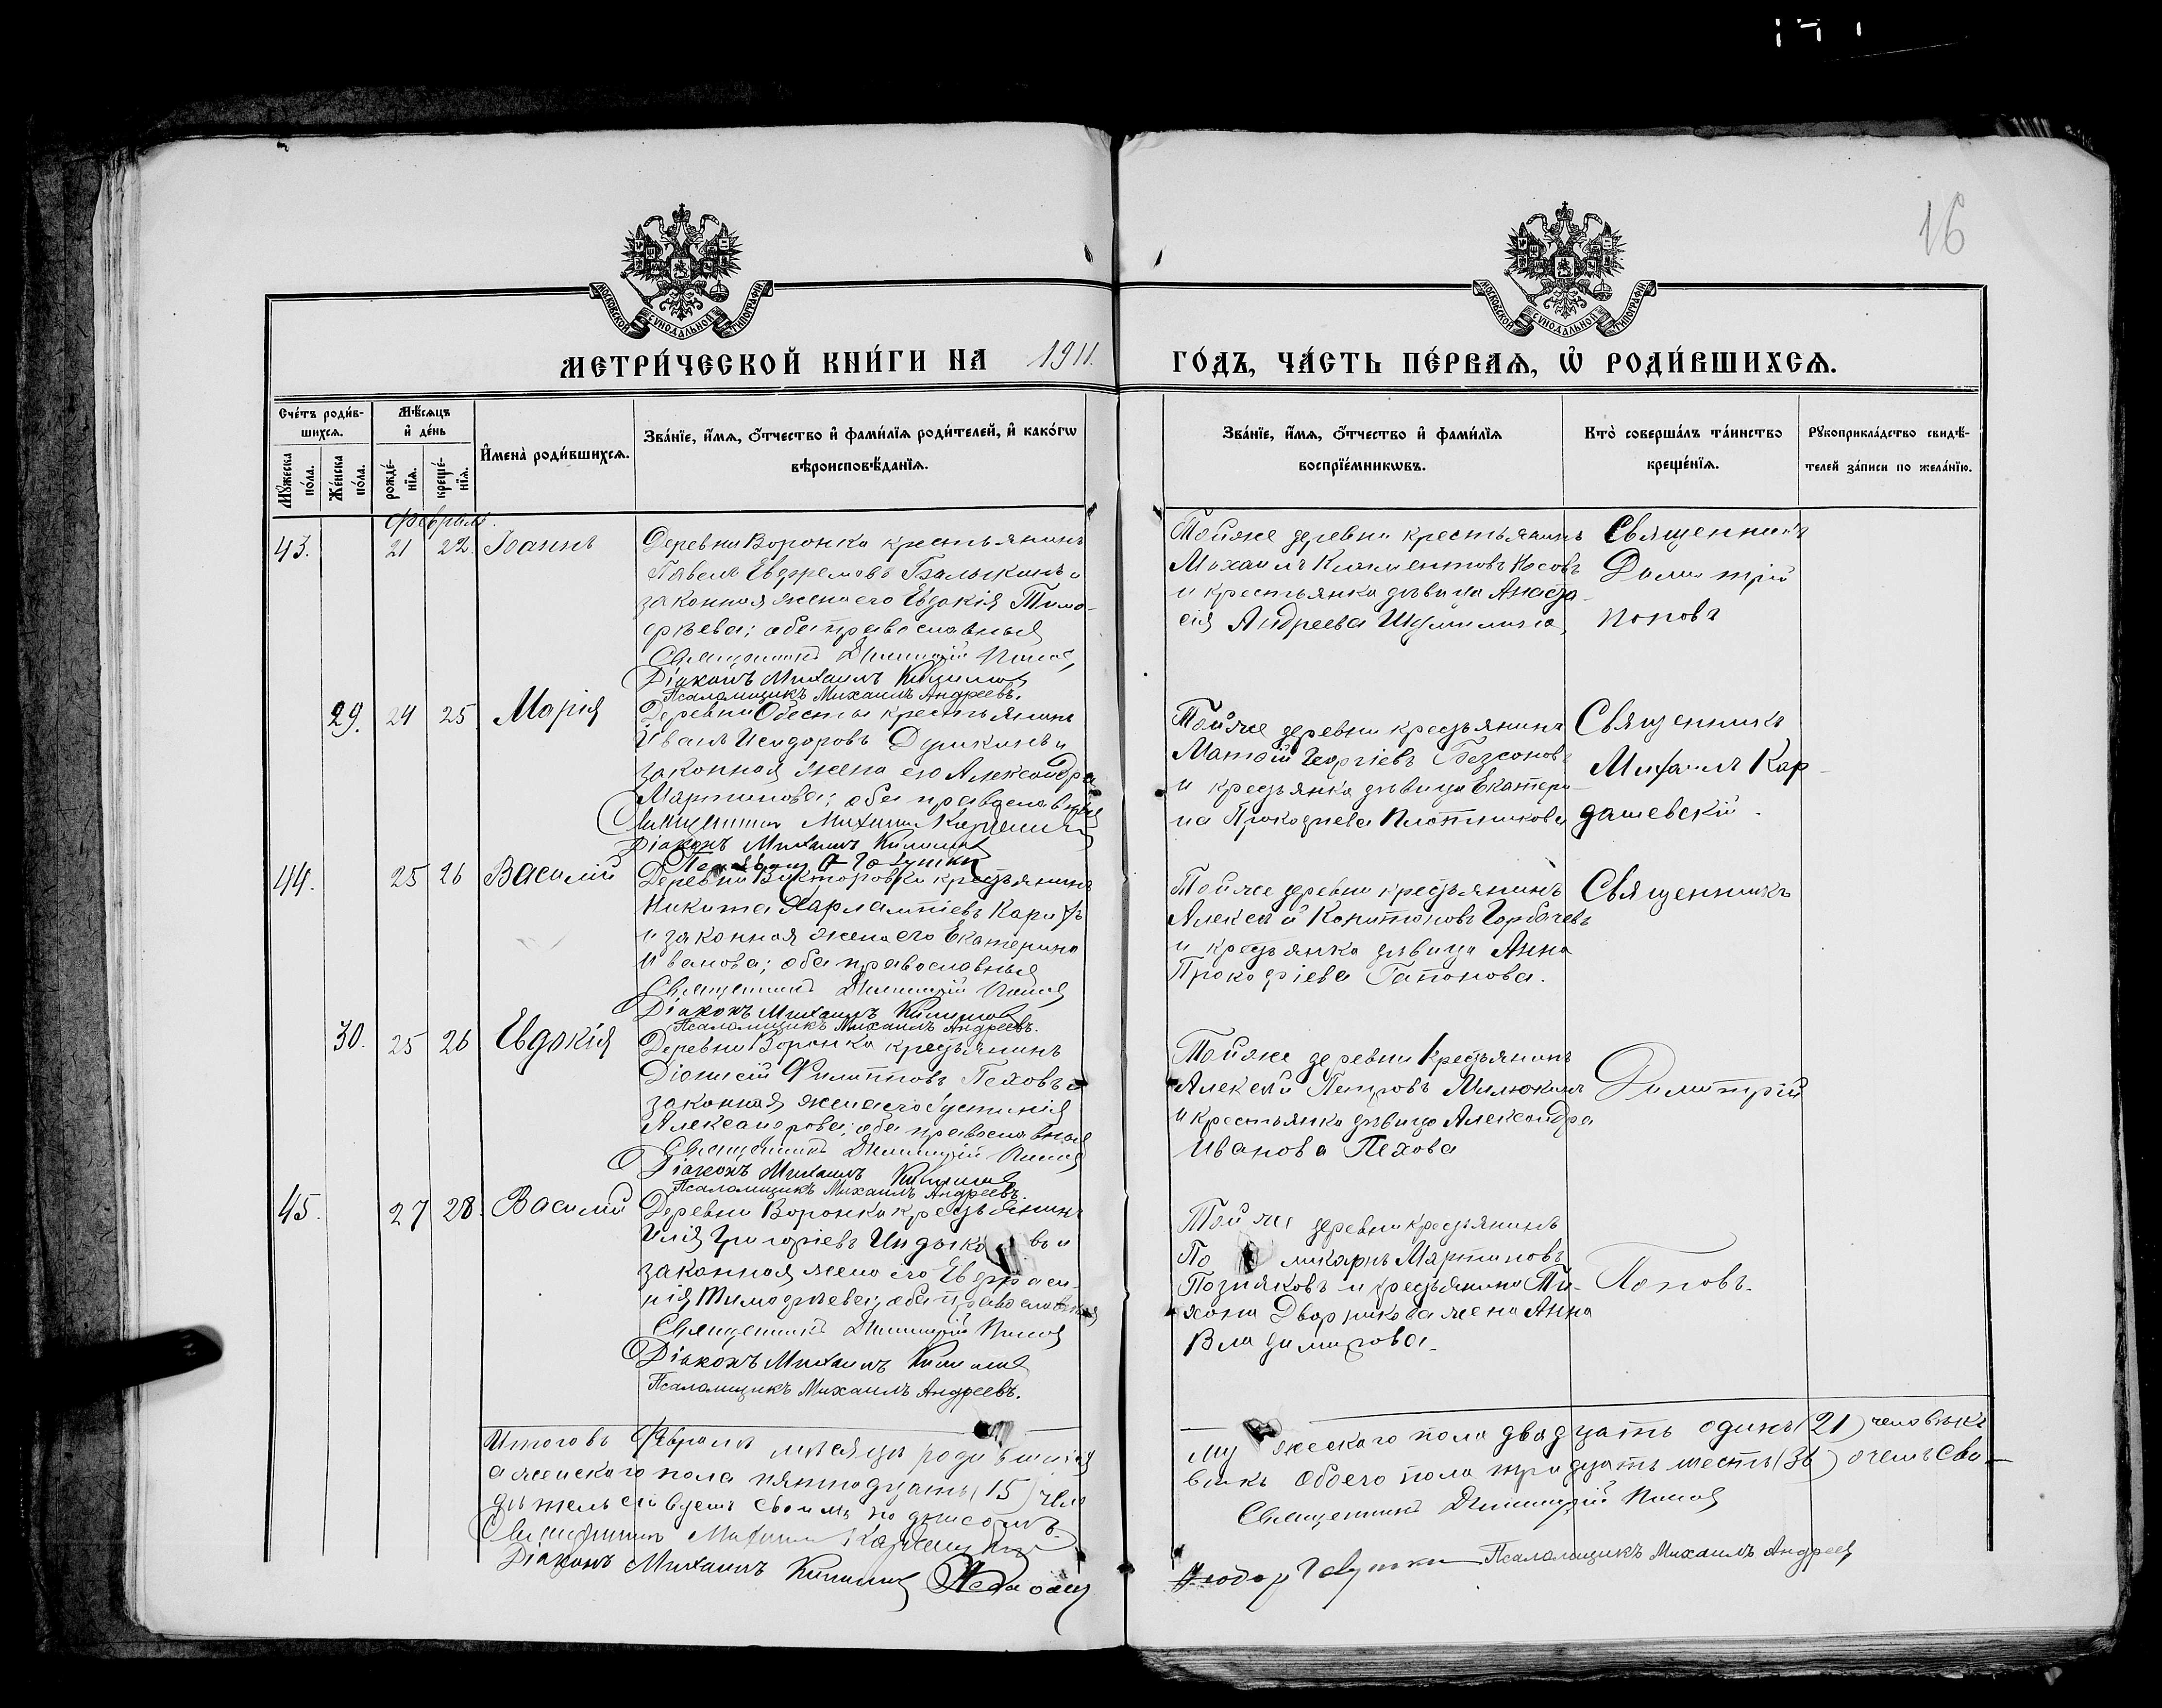 16
МОСКОВСКОЙ СУНОДАЛЬНОЙ ТИПОГРАФІИ
МОСКОВСКОЙ СУНОДАЛЬНОЙ ТИПОГРАФІИ
МЕТРИ́ЧЕСКОЙ КНИ́ГИ НА 1911. ГО́ДЪ, ЧА́СТЬ ПЕ́РВАѦ, Ѡ РОДИ́ВШИХСѦ.
Сче́тъ роди́в-
шихсѧ.
Мꙋ́жеска по́ла.
Же́нска по́ла.
Мѣ́сѧцъ и де́нь
рожде́-нїѧ.
креще́-нїѧ.
И҆мена̀ роди́вшихсѧ.
Зва́нїе, и҆́мѧ, ѻ҆́тчество и҆ фами́лїѧ роди́телей, и҆ како́гѡ
вѣроисповѣ́данїѧ.
Зва́нїе, и҆́мѧ, ѻ҆́тчество и҆ фами́лїѧ
воспрїе́мникѡвъ.
Кто̀ соверша́лъ та́инство
креще́нїѧ.
Рꙋкоприкла́дство свидѣ́-
телей за́писи по жела́нїю.
Февраль.
43. 21 22. Іоаннъ
Деревни Воронка крестьянинъ
Павелъ Евфремовъ Балыкинъ и
законная жена его Евдокія Тимо-
фѣева; оба православныя
Священникъ Димитрій Поповъ
Діаконъ Михаилъ
Псаломщикъ Михаилъ Андреевъ.
Тойже деревни крестьянинъ
Михаилъ Климентовъ Носовъ
и крестьянка дѣвица Анаста-
сія Андреева Шумилина,
Священникъ
Димитрій
Поповъ
29. 24 25. Марія
Деревни Обесты крестьянинъ
Иванъ Исидоровъ Дурикинъ и
законная жена его Александра
Мартинова; оба православныя
Священникъ Михаилъ Кардашевскій
Діаконъ Михаилъ
Тойже деревни крестьянинъ
Матѳій Георгіевъ Безсоновъ
и крестьянка дѣвица Екатери-
на Прокофіева Плотникова
Священникъ
Михаилъ Кар-
дашевскій.
44. 25 26 Василій
Деревни Викторовки крестьянинъ
Никита Харлампіевъ
и законная жена его Екатерина
Иванова; оба православныя
Священникъ Димитрій Поповъ
Діаконъ Михаилъ
Псаломщикъ Михаилъ Андреевъ.
Тойже деревни крестьянинъ
Алексей Капитоновъ Горбачевъ
и крестьянка дѣвица Анна
Прокофіева Гапонова.
Священникъ
30. 25 26 Евдокія
Деревни Воронка крестьянинъ
Діонисій Филипповъ Пеховъ и
законная жена его Іустинія
Александрова; оба православныя
Священникъ Димитрій Поповъ
Діаконъ Михаилъ
Псаломщикъ Михаилъ Андреевъ.
Тойже деревни крестьянинъ
Алексей Петровъ Милюкинъ
и крестьянка дѣвица Александра
Иванова Пехова
Димитрій
45. 27 28. Василій
Деревни Воронка крестьянинъ
Илія Григоріевъ Индыко въ и
законная жена его Евфраси-
нія Тимофѣева; оба православныя
Священникъ Димитрій Поповъ
Діаконъ Михаилъ
Псаломщикъ Михаилъ Андреевъ.
Тойже деревни крестьянинъ
По ликарпъ Мартиновъ
Позняковъ и крестьянина Ти-
хона Дворникова жена Анна
Владимирова.
Поповъ.
Итого въ Февралѣ мѣсяцѣ родившихся му жескаго пола двадцать одинъ (21) человѣкъ
а женскаго пола пятнадцать (15) чело вѣкъ обоего пола тридцать шесть (36) о чемъ сви-
дѣтельствуемъ своимъ подписомъ.
Священникъ Михаилъ Кардашевскій
Священникъ Димитрій Поповъ
Діаконъ Михаилъ
Псаломщикъ Михаилъ Андреевъ